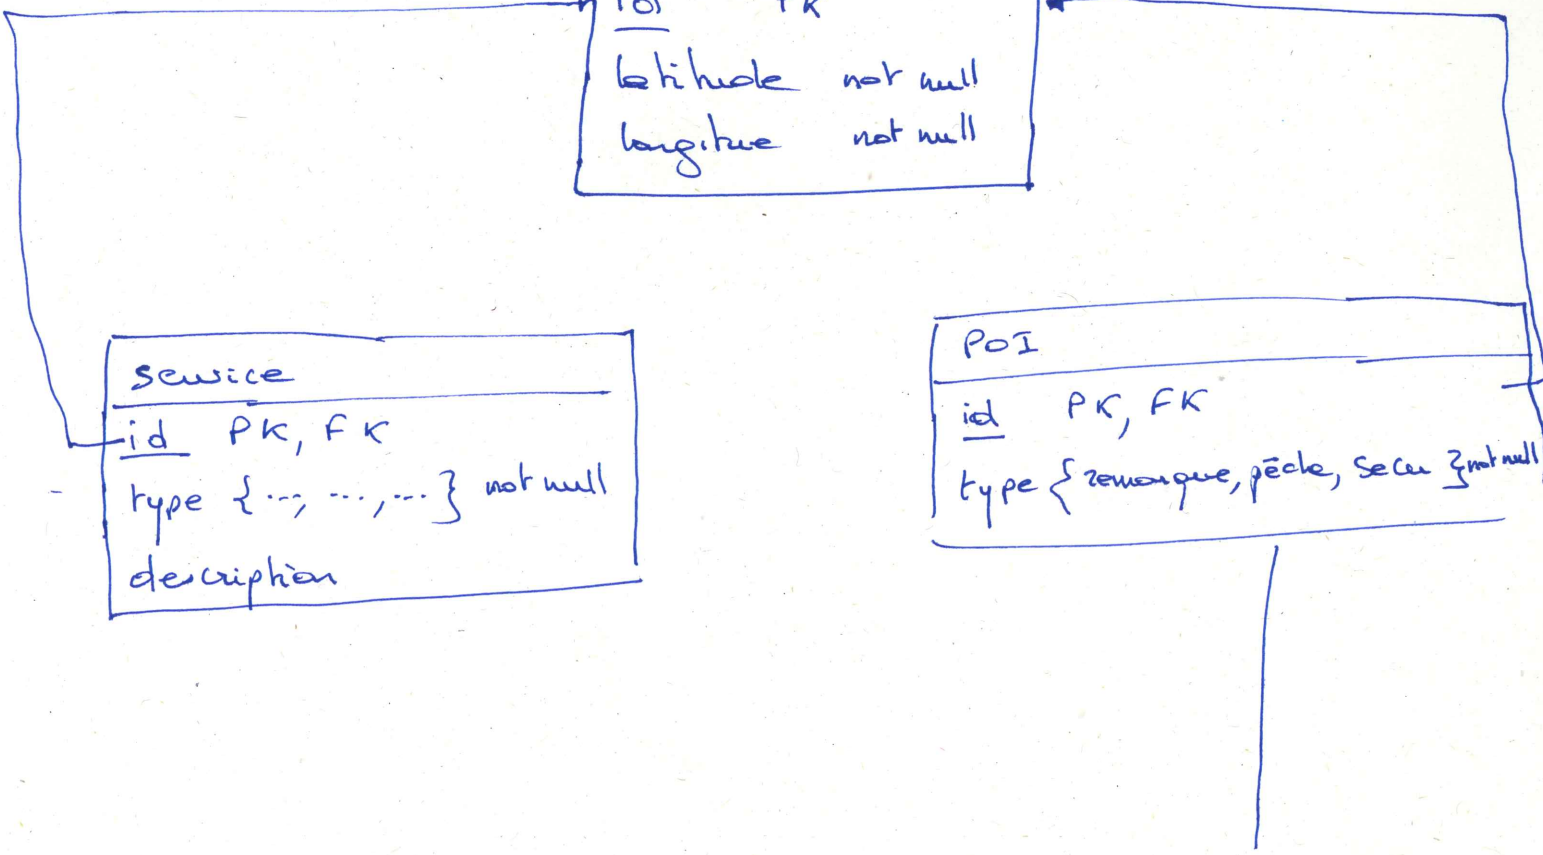 latitude not null
longitue not null
service
id PK, FK
type {..., ..., ...} not null
description
POI
id PK, FK
type { remorque, pêche, secu } not null